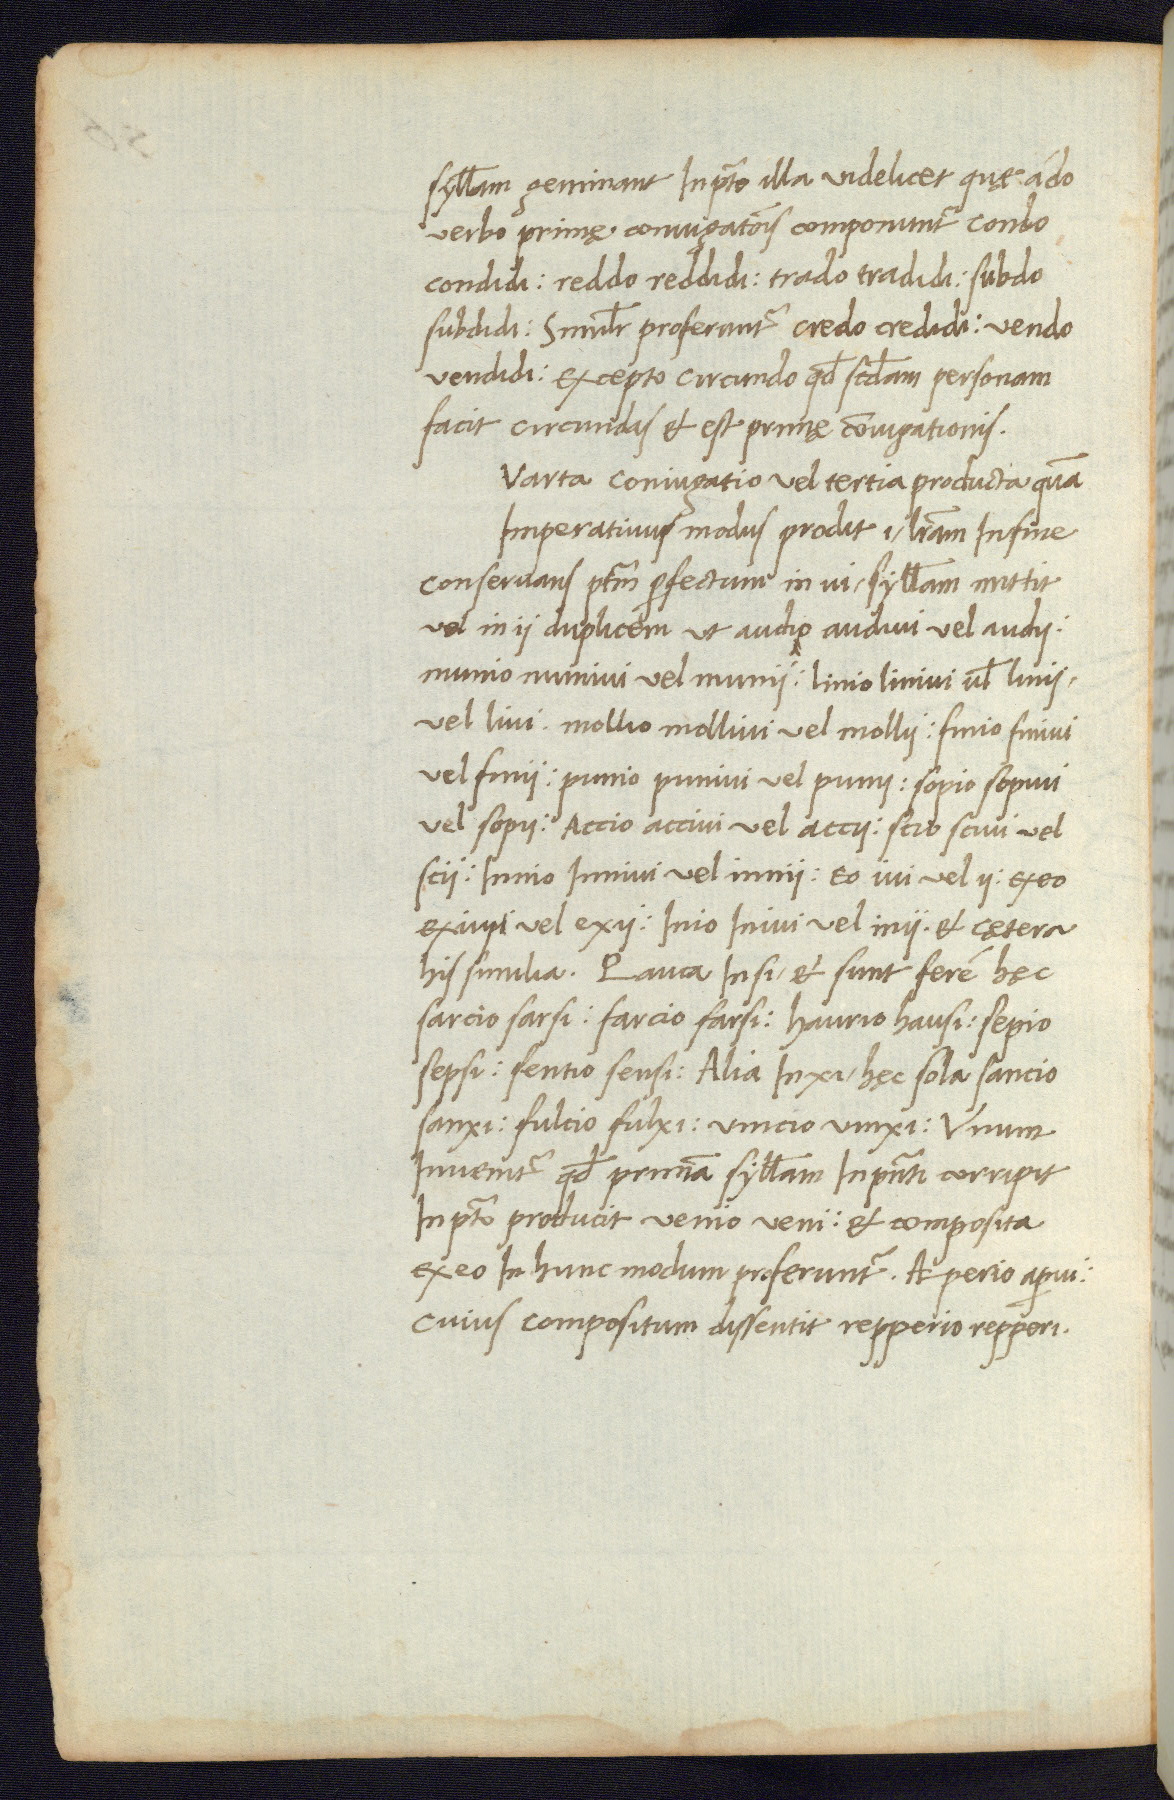 syll̅am geminant In pt̅o illa videlicet quę a do
verbo primę coniugat̅ois componunt᷑ Condo
condidi: reddo reddidi: trado tradidi: subdo
subdidi: Simil̅r proferunt᷑ credo credidi: vendo
vendidi: excepto circundo qd̅ scd̅am personam
facit circundas et est primę co̅iugationis.
Varta coniugatio vel tertia producta qua̅
Imperativus modus prodit i/ lr̅am In fine
conservans pt̅m p̱fectum in vi/ syll̅am mittit
vel in ij duplicem ut audio audivi vel audij:
munio munivi vel munij: linio linivi vl̅ linij/
vel livi. mollio mollivi vel mollij: finio finivi
vel finij: punio punivi vel punij: sopio sopivi
vel sopij: Accio accivi vel accij: scio scivi vel
scij: Innio Innivi vel innij: Eo ivi vel ij: exeo
exivi vel exij: Inio Inivi vel inij. et cętera
his similia. Pauca In si/ et sunt fere hęc
sarcio sarsi: farcio farsi: haurio hausi: sepio
sepsi: sentio sensi: Alia In xi/ hęc sola sancio
sanxi: fulcio fulxi: vincio vinxi: Vnum
Invenit᷑ qd̅ prima̅ syll̅am In pn̅ti corripit
In pt̅o producit venio veni: et composita
exeo In hunc modum proferunt᷑. Aperio ap̱ui:
cuius compositum dissentit repperio repperi.